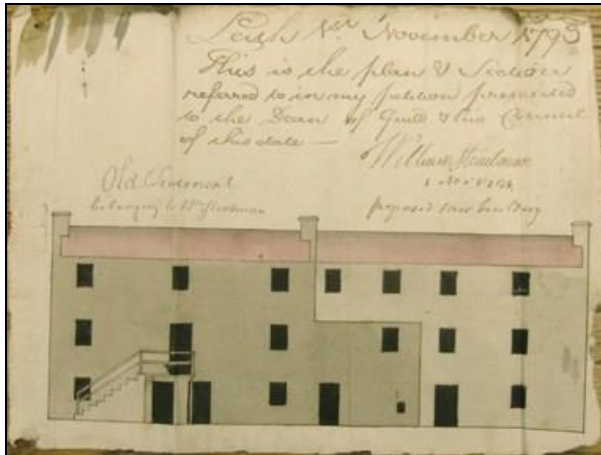 Leith 1st November 1793
This is the plan & Section
referred to in my petition presented
to the Dean of Guild & his Council
of this date —
William Steedman
Old Tenement
belonging to Wm Steedman
proposed new building